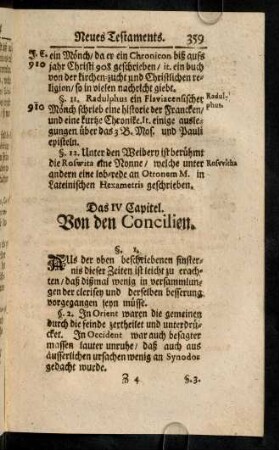 Neues Testaments. 359
J. C. ein Mönch/ da er ein Chronicon biß aufs
910 jahr Christi 908 geschrieben / it. ein buch
von der kirchen-zucht und Christlichen re-
ligion/ so in vielen nachricht giebt.
§. 11. Radulphus ein Flaviacensischer Radul-
phus.
910 Mönch schrieb eine historie der Francken/
und eine kurtze Chronike. It. einige ausle-
gungen über das 3 B. Mos. und Pauli
episteln.
§. 12. Unter den Weibern ist berühmt
die Roswita eine Nonne/ welche unter Roswitha
andern eine lob-rede an Ottonem M. in
Lateinischen Hexametris geschrieben.
Das IV Capitel.
Von den Concilien.
§. 1.
AUs der oben beschriebenen finster-
nis dieser Zeiten ist leicht zu erach-
ten/ daß dißmal wenig in versammlun-
gen der clerisey und derselben besserung
vorgegangen seyn müsse.
§. 2. In Orient waren die gemeinen
durch die feinde zertheilet und unterdrü-
cket. In Occident war auch besagter
massen lauter unruhe/ daß auch aus
äusserlichen ursachen wenig an Synodos
gedacht wurde.
Z 4 §. 3.